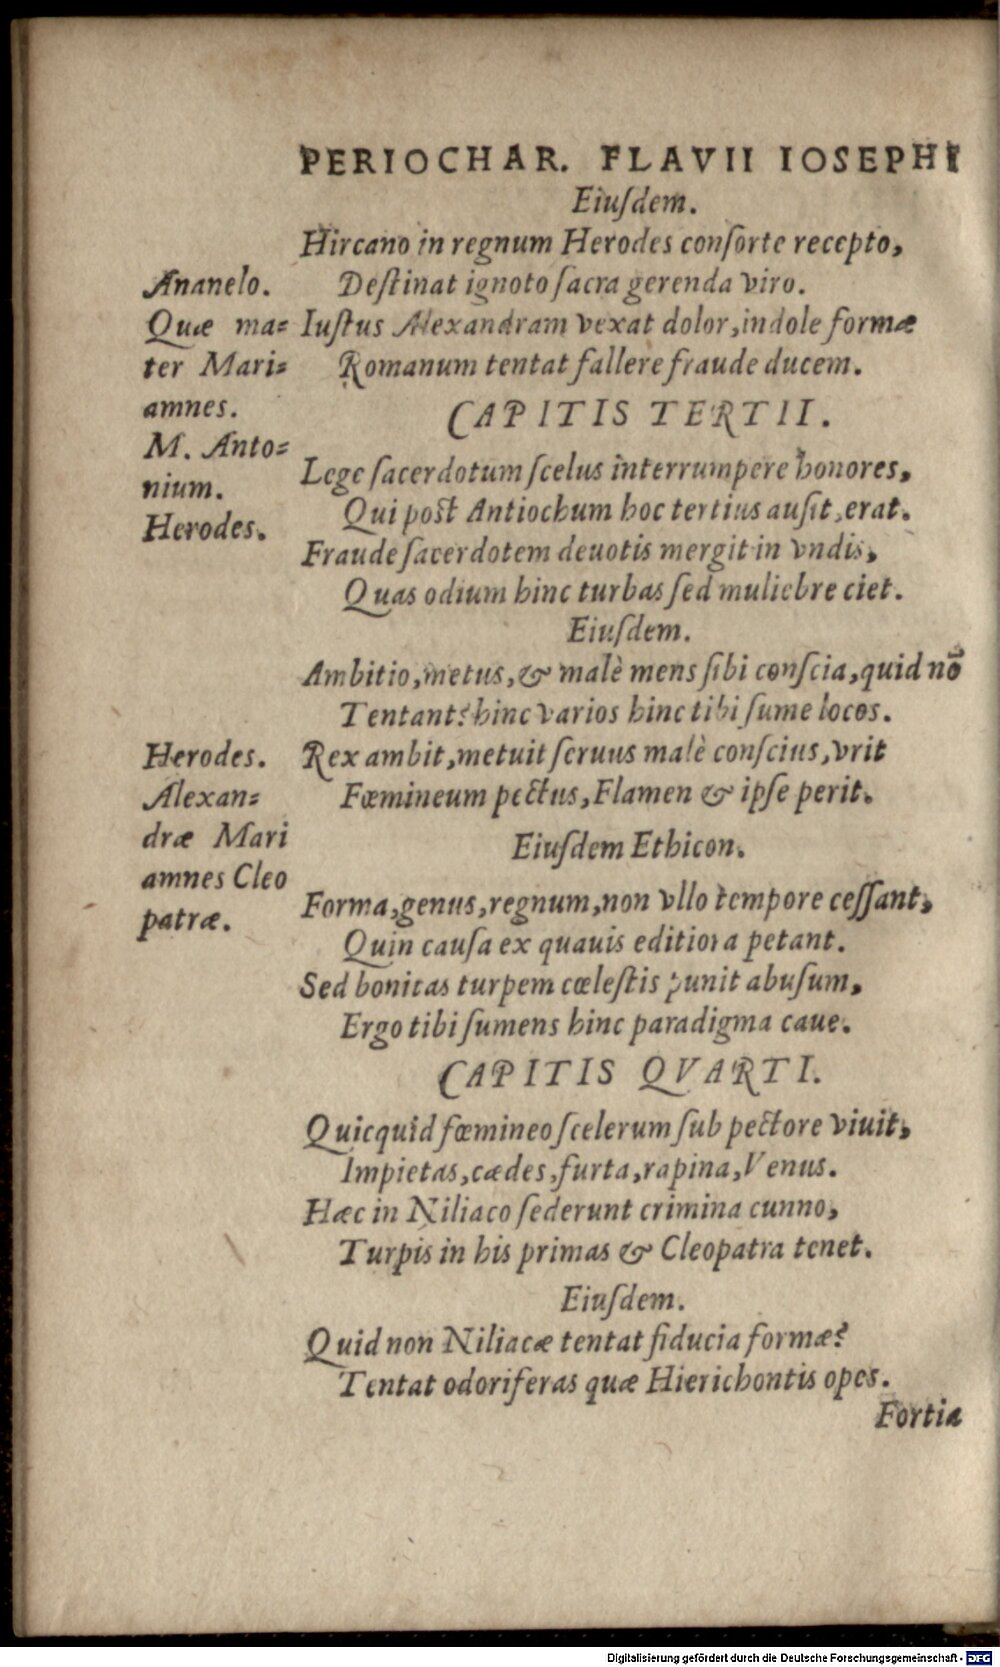 PERIOCHAR. FLAVII IOSEPHI
Eiuſdem.
Hircano in regnum Herodes conſorte recepto,
Ananelo.
Deſtinat ignoto ſacra gerenda viro.
Quæ ma=
Iuſtus Alexandram vexat dolor, indole formæ
ter Mari=
Romanum tentat fallere fraude ducem.
amnes.
CAPITIS TERTII.
M. Anto=
Lege ſacerdotum ſcelus interrumpere honores,
nium.
Qui poſt Antiochum hoc tertius auſit, erat.
Herodes.
Fraude ſacerdotem deuotis mergit in vndis,
Quas odium hinc turbas ſed muliebre ciet.
Eiuſdem.
Ambitio, metus, & malè mens ſibi conſcia, quid nō
Tentant? hinc varios hinc tibi ſume locos.
Herodes.
Rex ambit, metuit ſeruus malè conſcius, vrit
Alexan=
Fœmineum pectus, Flamen & ipſe perit.
dræ Mari
Eiuſdem Ethicon.
amnes Cleo
Forma, genus, regnum, non vllo tempore ceſſant,
patræ.
Quin cauſa ex quauis editiora petant.
Sed bonitas turpem cœleſtis punit abuſum,
Ergo tibi ſumens hinc paradigma caue.
CAPITIS QVARTI.
Quicquid fœmineo ſcelerum ſub pectore viuit,
Impietas, cædes, furta, rapina, Venus.
Hæc in Niliaco ſederunt crimina cunno,
Turpis in his primas & Cleopatra tenet.
Eiuſdem.
Quid non Niliacæ tentat fiducia formæ?
Tentat odoriferas quæ Hierichontis opes.
Fortia
Digitalisierung gefördert durch die Deutsche Forschungsgemeinschaft - DFG